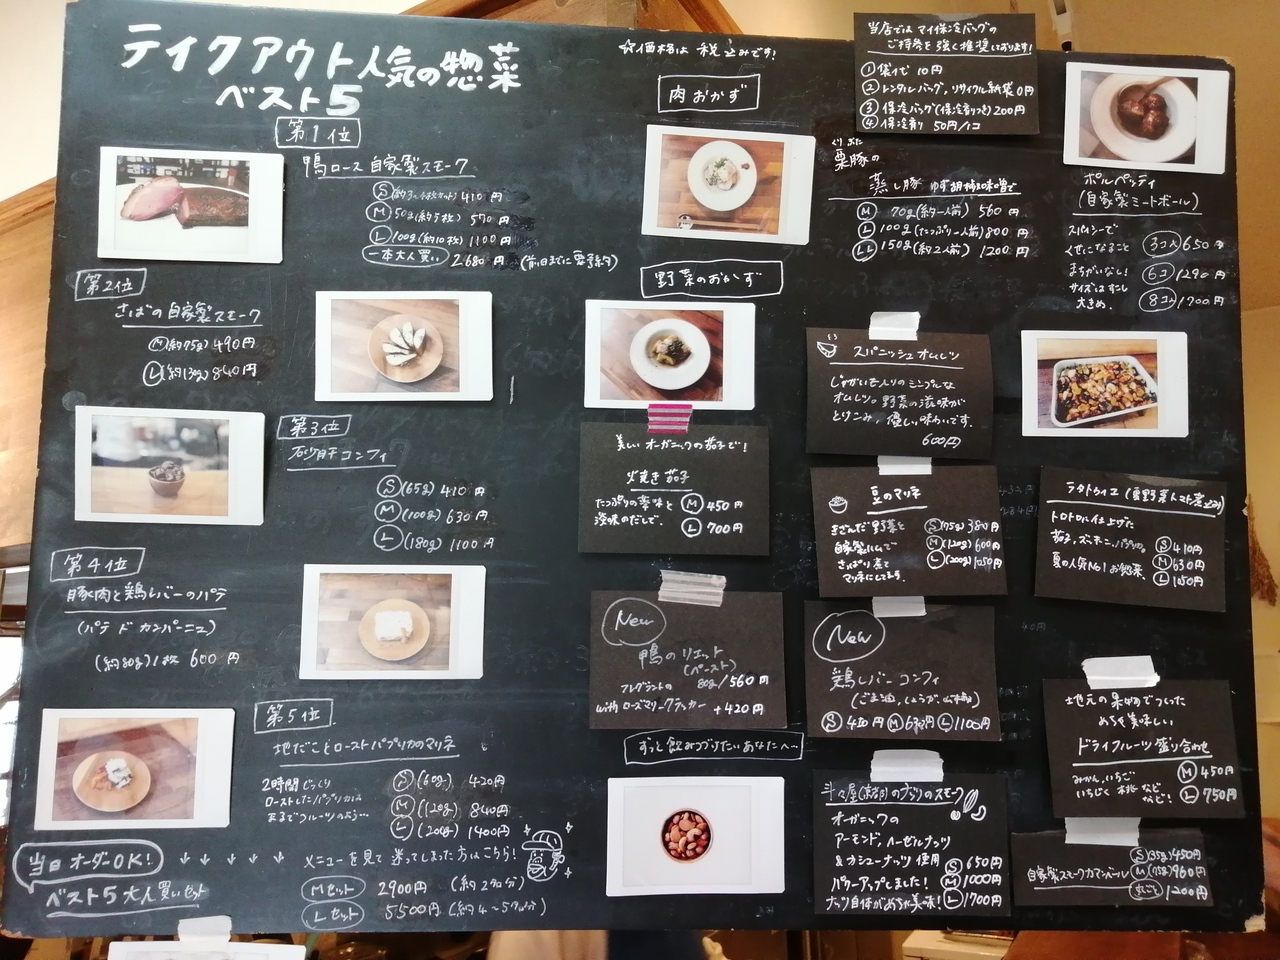 テイクアウト人気の惣菜
ベスト5
☆価格は 税込みです!
第1位
鴨ロース 自家製スモーク
S (約3〜4枚セット) 410円
M 50g(約5枚) 570円
L 100g(約10枚) 1100円
一本大人買い 2,680円 (前日までに要予約)
第2位
さばの自家製スモーク
M (約75g) 490円
L (約130g) 840円
第3位
砂肝コンフィ
S (65g) 410円
M (100g) 630円
L (180g) 1100円
第4位
豚肉と鶏レバーのパテ
(パテ ド カンパーニュ)
(約80g)1枚 600円
第5位
地だことローストパプリカのマリネ
2時間じっくり
ローストしたパプリカは
まるでフルーツのよう…
S (60g) 420円
M (120g) 840円
L (200g) 1400円
当日オーダーOK!
ベスト5大人買いセット
↓ ↓ ↓ ↓ ↓ メニューを見て迷ってしまった方はこちら!
Mセット 2900円 (約2名分)
Lセット 5,500円 (約4〜5名分)
肉おかず
くりぶた
栗豚の
蒸し豚 ゆず胡椒味噌で
M 70g(約一人前) 560円
L 100g(たっぷり一人前) 800円
LL 150g(約2人前) 1200円
当店ではマイ保冷バッグの
ご持参を強く推奨しております!
① 袋代 10円
② レンタルバッグ, リサイクル紙袋 0円
③ 保冷バッグ(保冷剤つき) 200円
④ 保冷剤 50円/1コ
ポルペッティ
(自家製ミートボール)
まちがいなし!
サイズはすこし
大きめ。
3コ入 650円
6コ 1290円
8コ入 1700円
野菜のおかず
美しいオーガニックの茄子で!
焼き茄子
たっぷりの薬味と
滋味のだしで。
M 450円
L 700円
スパニッシュオムレツ
じゃがいも入りのシンプルな
オムレツ。野菜の滋味が
とけこみ、優しい味わいです。
600円
豆のマリネ
きざんだ野菜と
自家製ハムで
さっぱり煮て
マリネにしてます。
S (75g) 380円
M (120g) 600円
L (200g) 1050円
ラタトゥイユ (夏野菜トマト煮込み)
トロトロに仕上げた
茄子、ズッキーニ、パプリカ。
夏の人気No1お惣菜。
S 410円
M 630円
L 1050円
New
鴨のリエット
(ペースト)
80g/560円
フレグラントの
withローズマリークラッカー +420円
New
鶏レバーコンフィ
(ごま油, しょうが, 山椒)
S 410円 M 630円 L 1100円
地元の果物でつくった
めちゃ美味しい
ドライフルーツ盛り合わせ
みかん, いちご
いちじく 桃 など
など!
M 450円
L 750円
ずっと飲みつづけたいあなたへ〜
オーガニックの
アーモンド, ヘーゼルナッツ
&カシューナッツ 使用
パワーアップしました!
ナッツ自体がめちゃ美味!
S 650円
M 1000円
L 1700円
自家製スモークカマンベール
S (35g) 450円
M (75g) 960円
まるごと 1200円